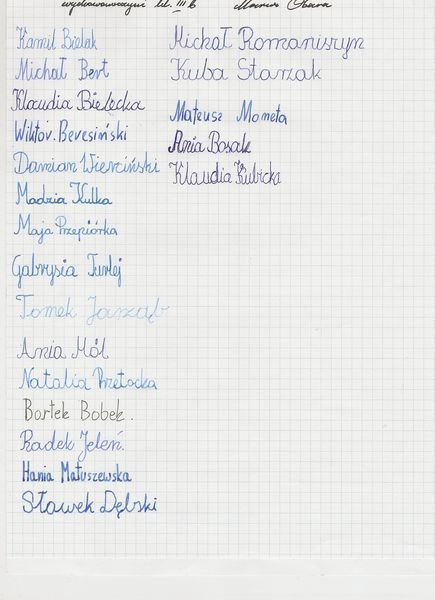 wychowawczyni kl. III b
Kamil Bielak
Michał Bert
Klaudia Bielecka
Wiktor. Beresiński
Damian Wierciński
Madzia Kulka
Maja Przepiórka
Gabrysia Turlej
Tomek Jarząb
Ania Mól
Natalia Przetocka
Bartek Bobek.
Radek Jeleń.
Hania Matuszewska
Sławek Dębski
Michał Romaniszyn
Kuba Starzak
Mateusz Moneta
Ania Bosak
Klaudia Kubicka